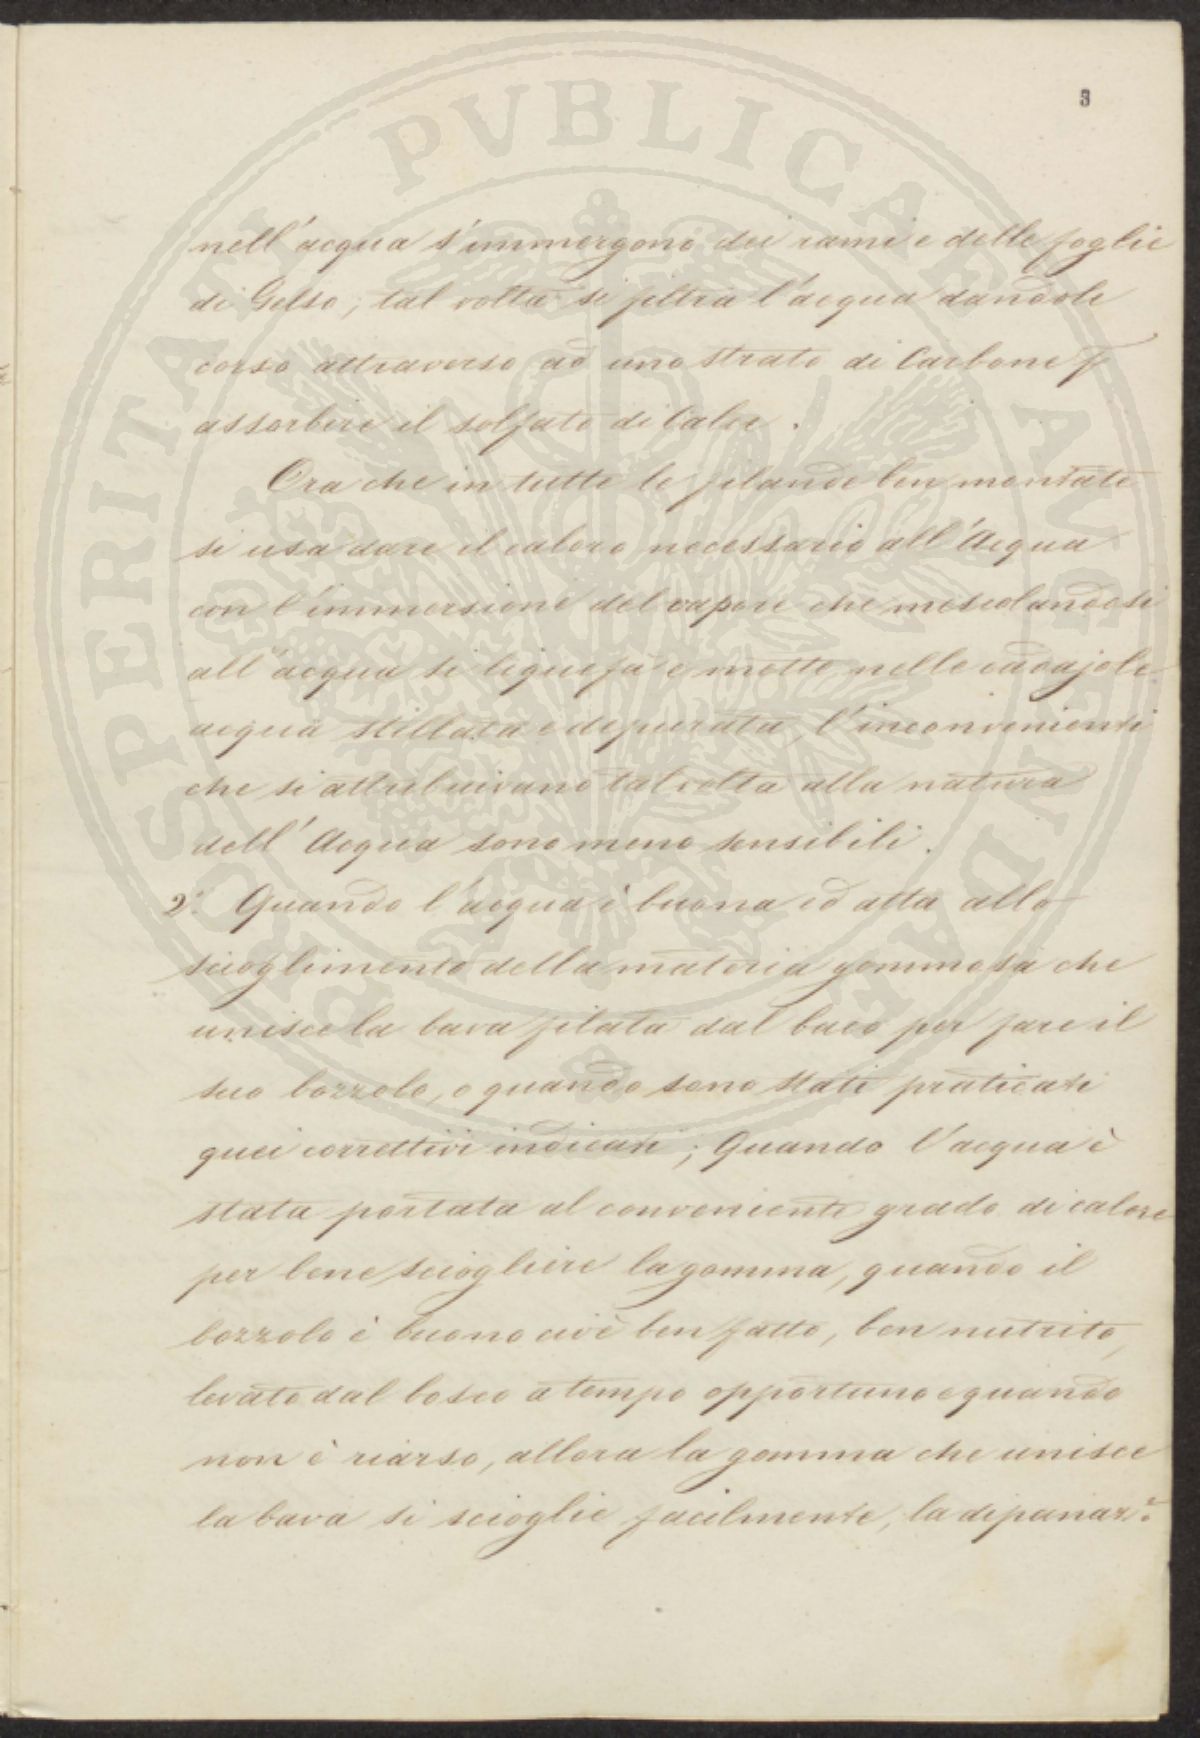 3
nell'acqua s'immergono dei rami e delle foglie
di Gelso; tal volta si filtra l'acqua dandole
corso attraverso ad uno strato di Carbone p
assorbire il solfato di Calce.
Ora che in tutte le filande ben montate
si usa dare il calore necessario all'Acqua
con l'immersione del vapore che mescolandosi
all'acqua si liquefà e mette nelle caldajole
acqua stillata e depurata, l'inconvenienti
che si attribuivano talvolta alla natura
dell'Acqua sono meno sensibili.
2.° Quando l'acqua è buona ed atta allo
scioglimento della materia gommosa che
unisce la bava filata dal baco per fare il
suo bozzolo, o quando sono stati praticati
quei correttivi indicati; Quando l'acqua è
stata portata al conveniente grado di calore
per bene sciogliere la gomma, quando il
bozzolo è buono cioè ben fatto, ben nutrito,
levato dal bosco a tempo opportuno e quando
non è riarso, allora la gomma che unisce
la bava si scioglie facilmente, la dipanaz.e
PROSPERITATI PVBLICAE AVGENDAE